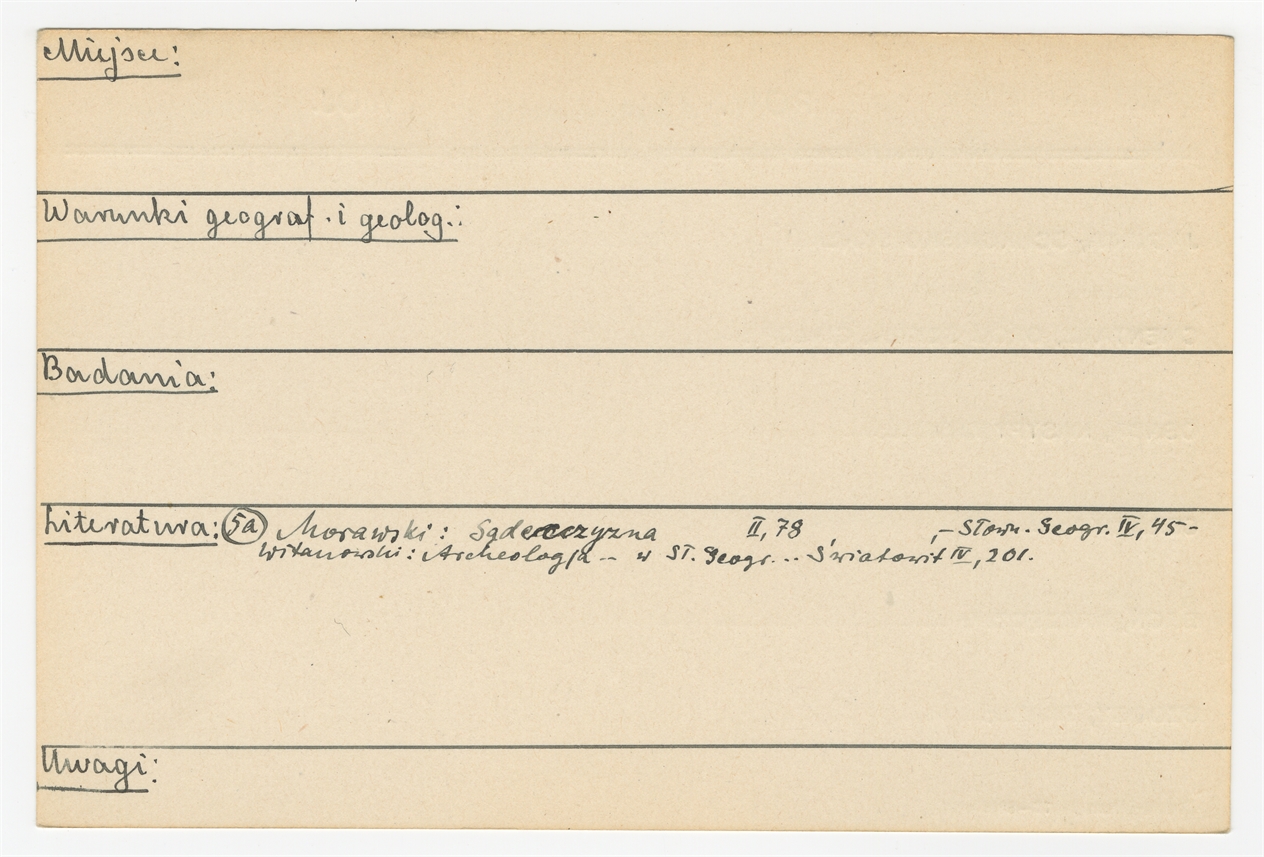 Miejsce:
Warunki geograf. i geolog.:
Badania:
Literatura: 5a Morawski: Sądecczyzna II, 78 ,- Słown. Geogr. IV, 45 -
Witanowski: Archeologja -- w Sł. Geogr... Światowit IV, 201.
Uwagi: